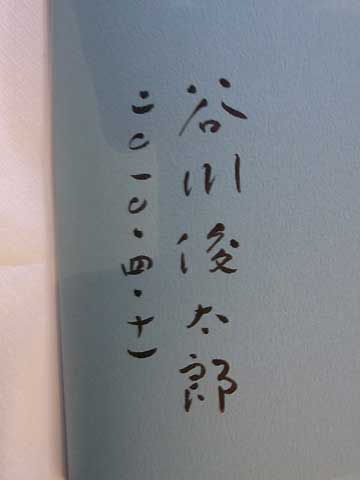 谷川俊太郎
二〇一〇・四・十一